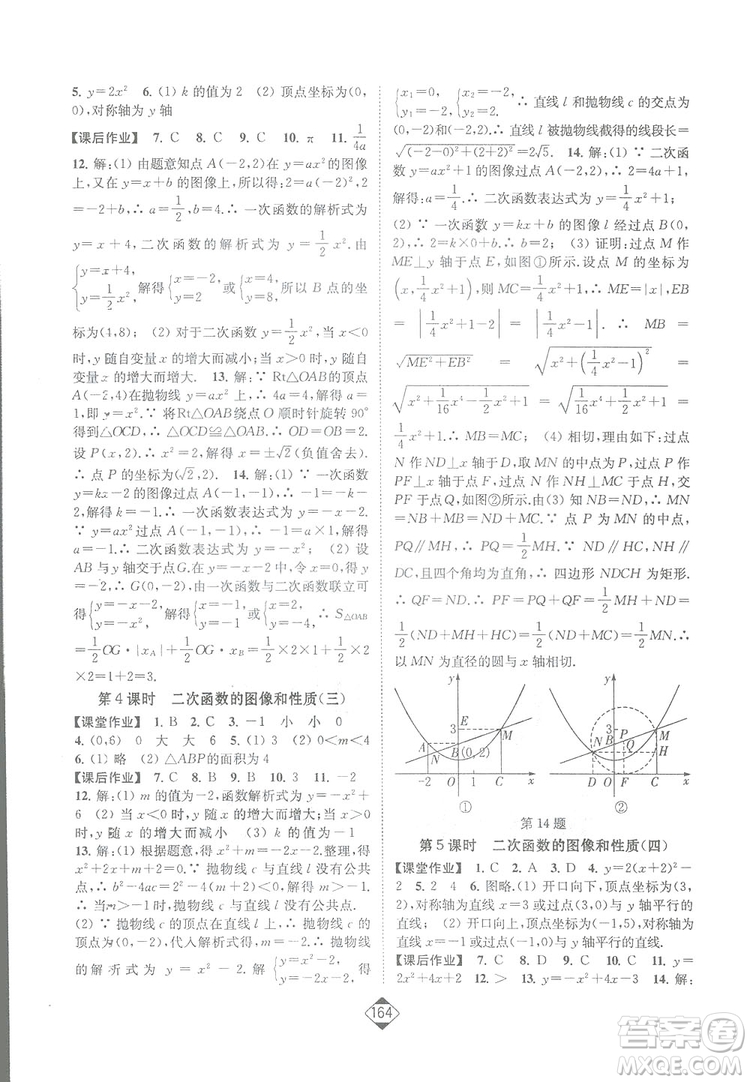 5. y=2x² 6. (1) k的值为2 (2) 顶点坐标为(0,
0),对称轴为y轴
【课后作业】 7. C 8. C 9. C 10. π 11. 1/4a
12. 解:(1) 由题意知点A(-2,2)在y=ax²的图像
上,又在y=x+b的图像上,所以得:2=a(-2)²,2
=-2+b,∴a=1/2,b=4.∴一次函数的解析式为
y=x+4,二次函数的解析式为y=1/2x².由
{y=x+4, y=1/2x², 解得{x=-2, y=2 或{x=4, y=8. 所以B点的坐
标为(4,8);(2) 对于二次函数y=1/2x²,当x<0
时,y随自变量x的增大而减小;当x>0时,y随自
变量x的增大而增大. 13. 解:∵Rt△OAB的顶点
A(-2,4)在抛物线y=ax²上,∴4=4a,解得a=
1,即y=x².∵将Rt△OAB绕点O顺时针旋转90°
得到△OCD,∴CD∥x轴,∴OD=OB=2.
设P(x,2),∴2=x²,解得:x=±√2(负值舍去).
∴点P的坐标为(√2,2). 14. 解:∵一次函数
y=kx-2的图像过点A(-1,-1),∴-1=-k
-2,解得k=-1,∴一次函数表达式为y=-x-2,
∵y=ax²过点A(-1,-1),∴-1=a×1,解得
a=-1.∴二次函数表达式为y=-x²;(2) 设
AB与y轴交于点G,在y=-x-2中,令x=0,得y=
-2,∴G(0,-2),由一次函数与二次函数联立可
得{y=-x-2, y=-x², 解得{x=-1, y=-1 或{x=2, y=-4, ∴S△OAB
=1/2OG·|xA|+1/2OG·xB=1/2×2×1+1/2×2
×2=1+2=3.
第4课时 二次函数的图像和性质(三)
【课堂作业】 1. B 2. C 3. -1 小 小 0
4. (0,6) 大 大 6 5. (1) 3 (2) 0<m<4
6. (1) 略 (2) △ABP的面积为4
【课后作业】 7. C 8. B 9. B 10. C 11. -2
12. 解:(1) m的值为-2,函数解析式为y=-x²+
6 (2) 当x<0时,y随x增大而增大 (3) -1
13. 解:(1) 根据题意,联立得方程组.整理,得x²
-x+m+2=0.∵抛物线c与直线l没有公共
点,∴b²-4ac=2-4m-8<0,解得:m>-7/4.
(2) ∵抛物线c的顶点在直线l上,∴抛物线c的
顶点为(0,-2),代入解析式可得m=-2.∴抛物线
的解析式为y=x²-2.解{y=x²-2, y=x-2, 解得
{x₁=0, y₁=-2, {x₂=-2, y₂=... ∴直线l和抛物线c的交点为
(0,-2),(-2,...),∴直线l被抛物线截得的线段长=
√((-2-0)²+(2+2)²)=2√5. 14. 解:(1) ∵二次函
数y=ax²+1的图像经过点A(-2,2),∴4a+1=2,
解得:a=1/4∴二次函数表达式为y=1/4x²+1;
(2) ∵一次函数y=kx+b的图像l经过点B(0,
2),∴2=k×0+b,∴b=2;(3) 证明:过点M作
ME⊥y轴于点E,如图①所示.设点M的坐标为
(x,1/4x²+1),则MC=1/4x²+1.∴ME=|x|,EB=
|1/4x²+1-2|=|1/4x²-1|.∴MB=
√(ME²+EB²)=√(x²+(1/4x²-1)²)=
√(x²+1/16x⁴-1/2x²+1)=√(1/16x⁴+1/2x²+1)=
1/4x²+1.∴MB=MC;(4) 相切,理由如下:过点
N作ND⊥x轴于D,取MN的中点为P,过点P作
PF⊥x轴于点F,过点N作NH⊥MC于点H,交
PF于点Q,(如图②所示).由(3)知NB=ND,∴
MN=NB+MB=ND+MC.∵点P为MN的中点,
PQ∥MH,∴PQ=1/2MH.∵ND∥HC,NH∥
DC,且四个角均为直角,∴四边形NDCH为矩形.
∴QF=ND,∴PF=PQ+QF=1/2MH+ND=
1/2(ND+MH+HC)=1/2(ND+MC)=1/2MN.∴
以MN为直径的圆与x轴相切.
y 3 E M A B (0,2) -2 O 1 C x ①
y 3 M B P N Q H D O F C x ②
第14题
第5课时 二次函数的图像和性质(四)
【课堂作业】 1. C 2. A 3. D 4. y=2(x+2)²-
2 5. 2 4 6. 图略.(1) 开口向下,顶点坐标为(3,
2),对称轴为直线x=3与y轴平行的直线
(2) 开口向上,顶点坐标为(-1,5),
对称轴为直线x=-1与y轴平行的直线.
【课后作业】 7. C 8. C 9. D 10. C 11. y=
2x²+4x+2 12. > 13. x=4 14. 解:
164
答案圈
MXQE.COM